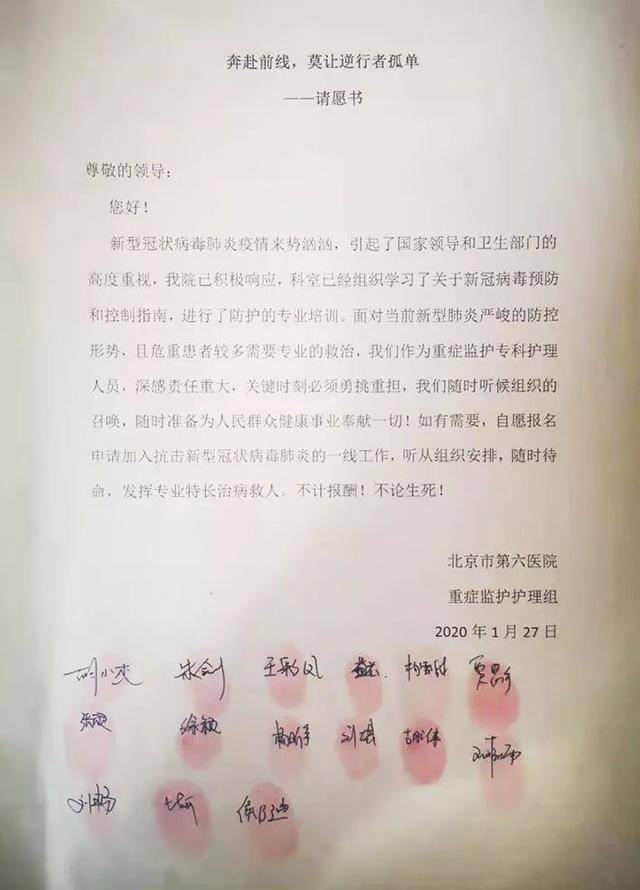 奔赴前线，莫让逆行者孤单
——请愿书
尊敬的领导：
您好！
新型冠状病毒肺炎疫情来势汹汹，引起了国家领导和卫生部门的
高度重视，我院已积极响应，科室已经组织学习了关于新冠病毒预防
和控制指南，进行了防护的专业培训。面对当前新型肺炎严峻的防控
形势，且危重患者较多需要专业的救治，我们作为重症监护专科护理
人员，深感责任重大，关键时刻必须勇挑重担，我们随时听候组织的
召唤，随时准备为人民群众健康事业奉献一切！如有需要，自愿报名
申请加入抗击新型冠状病毒肺炎的一线工作，听从组织安排，随时待
命，发挥专业特长治病救人。不计报酬！不论生死！
北京市第六医院
重症监护护理组
2020 年 1 月 27 日
胡小杰 朱剑 王彩凤
徐颖 刘琪
刘畅